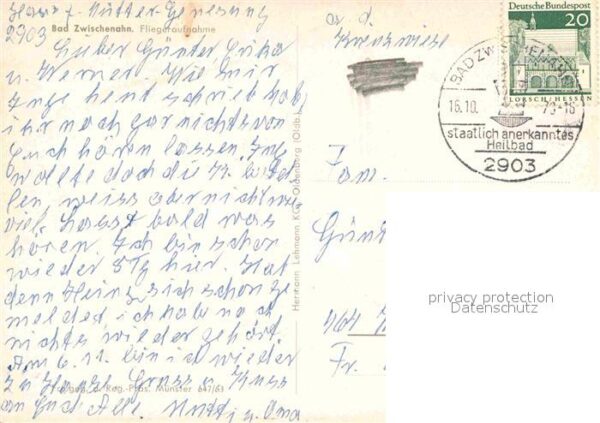 Haus f. Mütter-Genesung
2903 Bad Zwischenahn. Fliegeraufnahme
Lieber Günter, Erika
u. Werner. Wie mir
Inge heut schrieb hab
ihr noch gar nichts von
Euch hören lassen. Ing
wollte doch die
len, weiss aber nicht wie
viel. Lasst bald was
hören. Ich bin schon
wieder 8 Tg hier. Hat
denn Heinz sich schon ge
meldet, ich hab noch
nichts wieder gehört.
Am 6. 11. bin ich wieder
zu Hause Gruss u. Kuss
an Euch Alle. Mutti u. Oma
Freigeg. d. Reg.-Präs. Münster 647/63
Hermann Lehmann KG. Oldenburg (Oldb)
a. d.
Kreuzwiese
Deutsche Bundespost
20
LORSCH/HESSEN
BAD ZWISCHENAHN
16.10.
staatlich anerkanntes
Heilbad
2903
Fam.
Günt
464
Fr.
privacy protection
Datenschutz